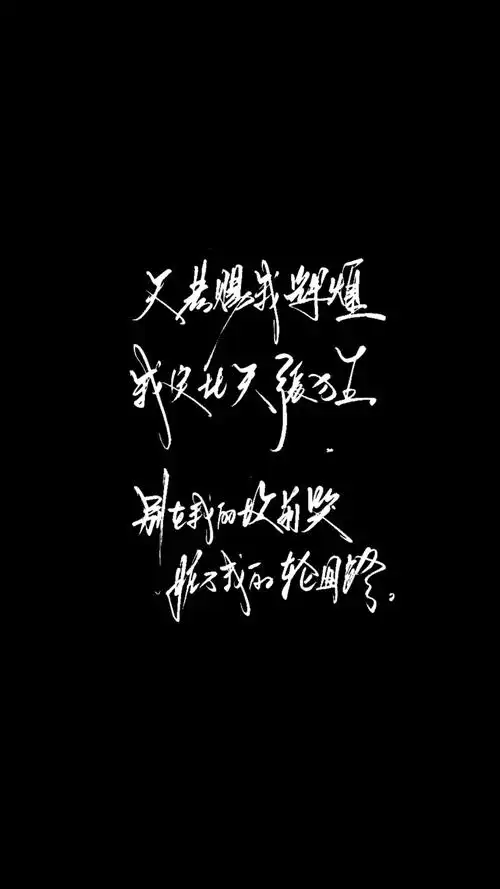 天若赐我辉煌
我定比天张力王
别在我的坟前哭
脏了我的轮回路。